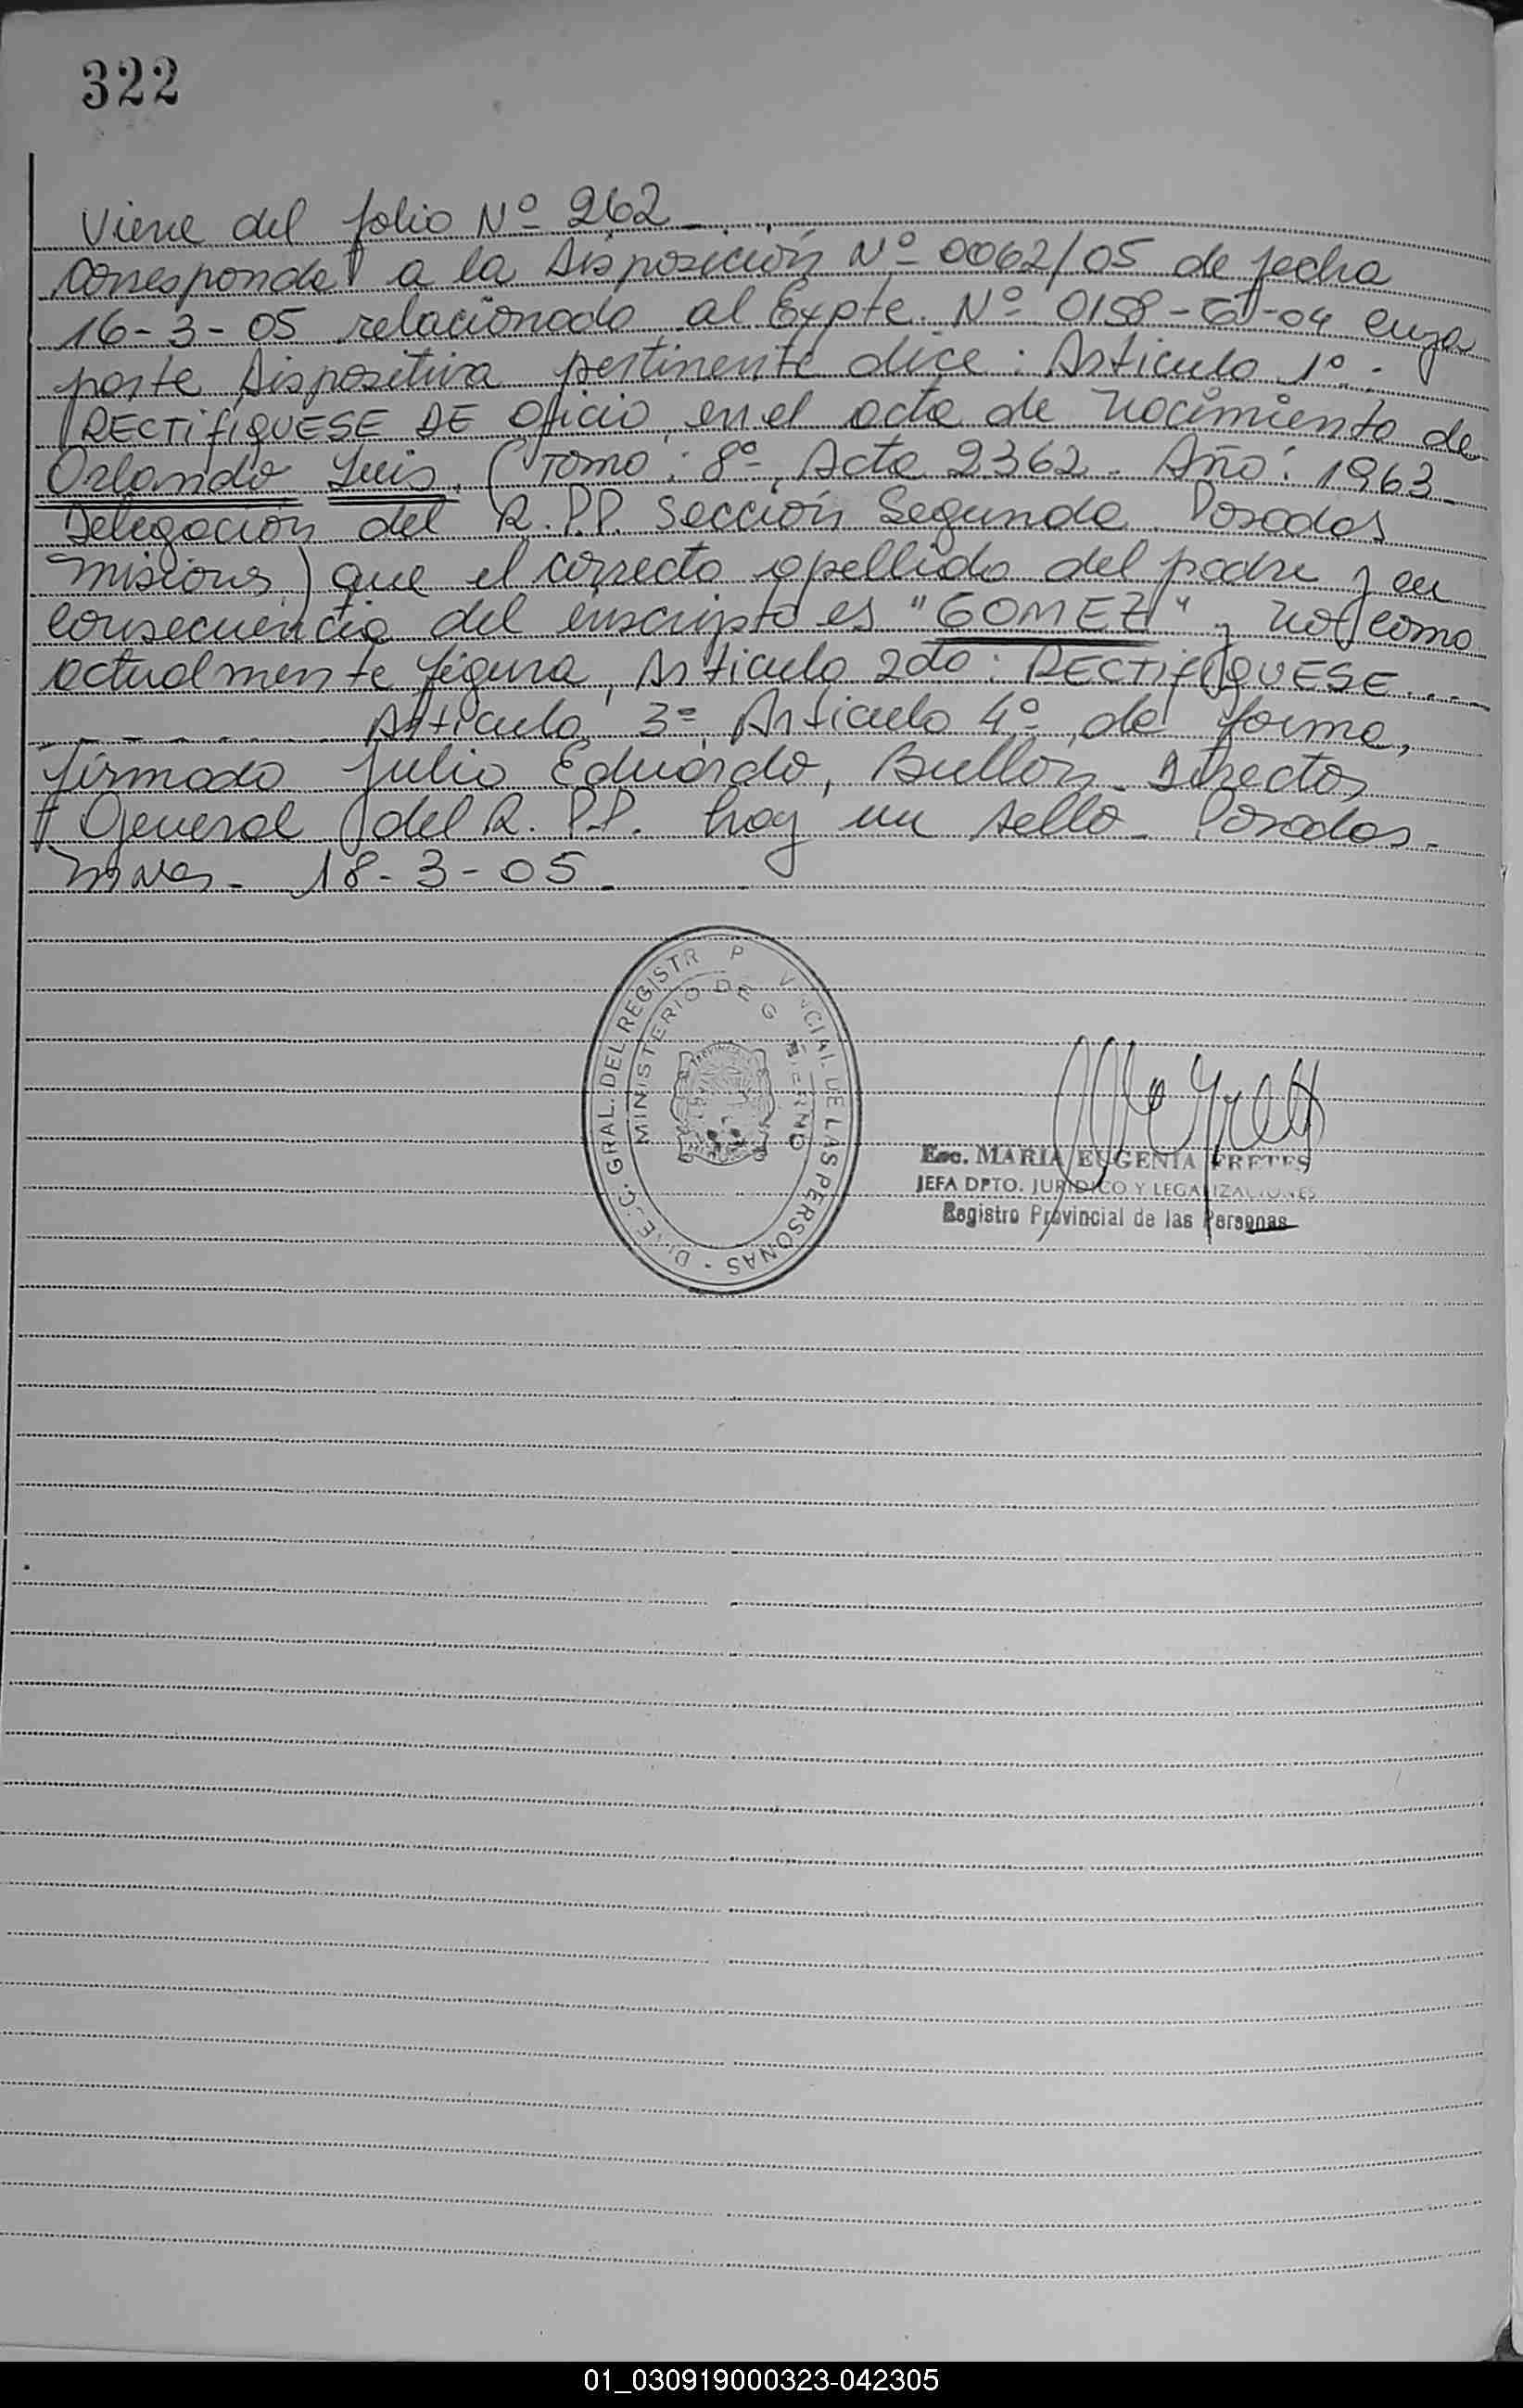 322
Viene del folio Nº 262
Corresponde a la Disposición Nº 0062/05 de fecha
16-3-05 relacionado al Expte. Nº 0158-G-04 cuya
parte Dispositiva pertinente dice: Articulo 1º:
RECTIFIQUESE DE Oficio, en el acta de nacimiento de
Orlando Luis. (Tomo: 8º Acta 2362. Año: 1963
Delegación del R.P.P. Sección Segunda. Posadas
Misiones) que el correcto apellido del padre y en
consecuencia del inscripto es "GOMEZ" y no como
actualmente figura, Articulo 2do: RECTIFIQUESE...
Articulo 3º Articulo 4º de forma,
firmado Julio Eduardo, Bullon Director
General del R.P.P. hay un sello - Posadas.
Mnes. 18-3-05
DIREC. GRAL. DEL REGISTR P V NCIAL DE LAS PERSONAS
MINISTERIO DE G BIERNO
Esc. MARIA EUGENIA FRETES
JEFA DPTO. JURIDICO Y LEGALIZACIONES
Registro Provincial de las Personas
01_030919000323-042305